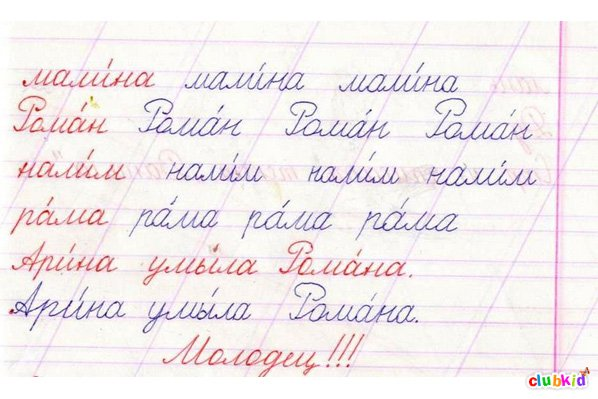 мали́на мали́на мали́на
Рома́н Рома́н Рома́н Рома́н
нали́м нали́м нали́м нали́м
ра́ма ра́ма ра́ма ра́ма
Ари́на умы́ла Рома́на.
Ари́на умы́ла Рома́на.
Молодец!!!
clubkid